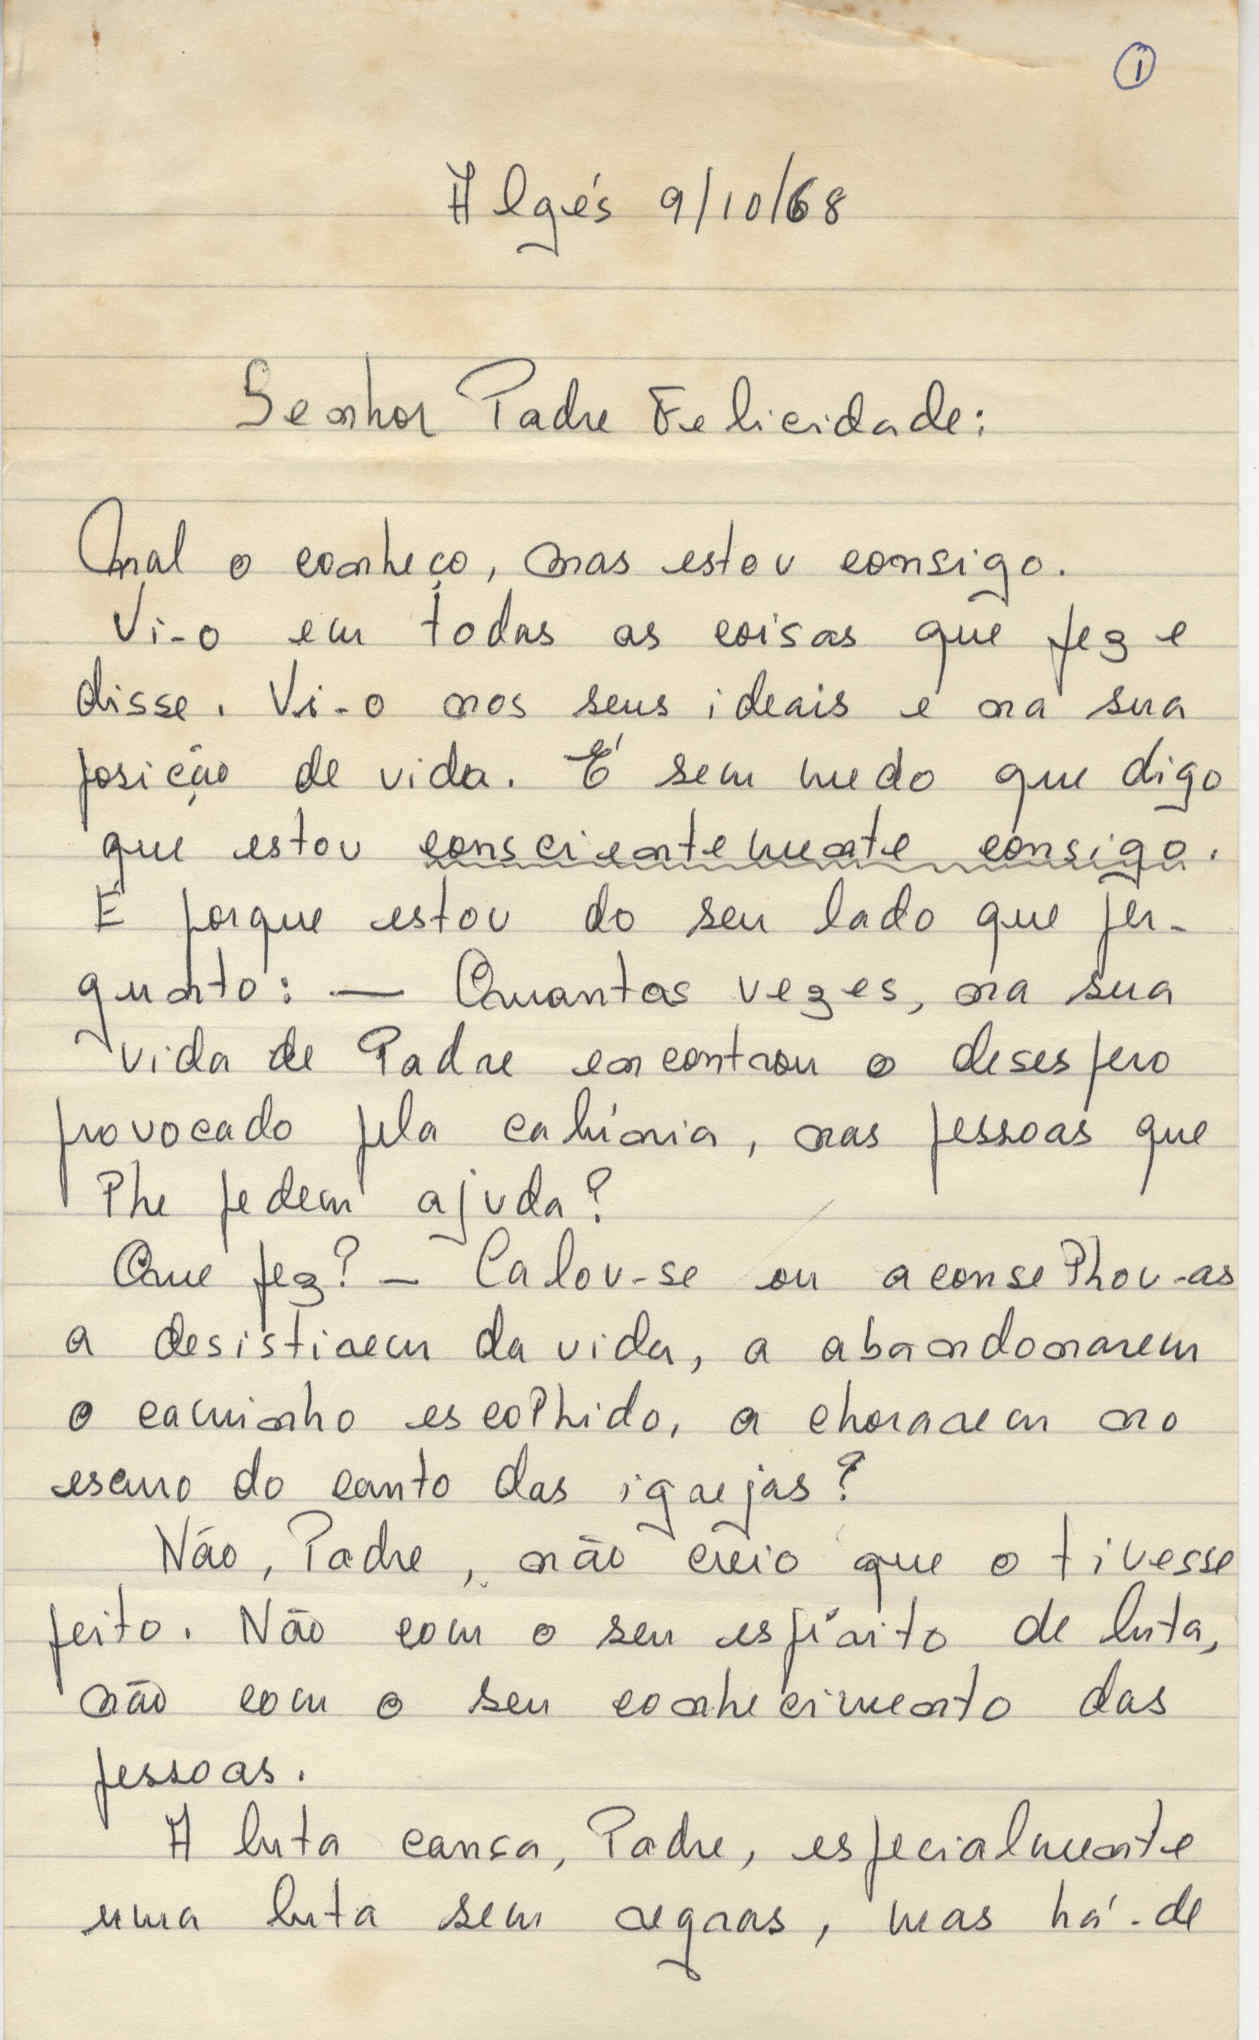 1
Algés 9/10/68
Senhor Padre Felicidade:
Mal o conheço, mas estou consigo.
Vi-o em todas as coisas que fez e
disse. Vi-o nos seus ideais e na sua
posição de vida. É sem medo que digo
que estou conscientemente consigo.
E porque estou do seu lado que per-
gunto: — Quantas vezes, na sua
vida de Padre encontrou o desespero
provocado pela calúnia, nas pessoas que
lhe pedem ajuda?
Que fez? - Calou-se ou aconselhou-as
a desistirem da vida, a abandonarem
o caminho escolhido, a chorarem no
escuro do canto das igrejas?
Não, Padre, não creio que o tivesse
feito. Não com o seu espírito de luta,
não com o seu conhecimento das
pessoas.
A luta cansa, Padre, especialmente
uma luta sem regras, mas há-de